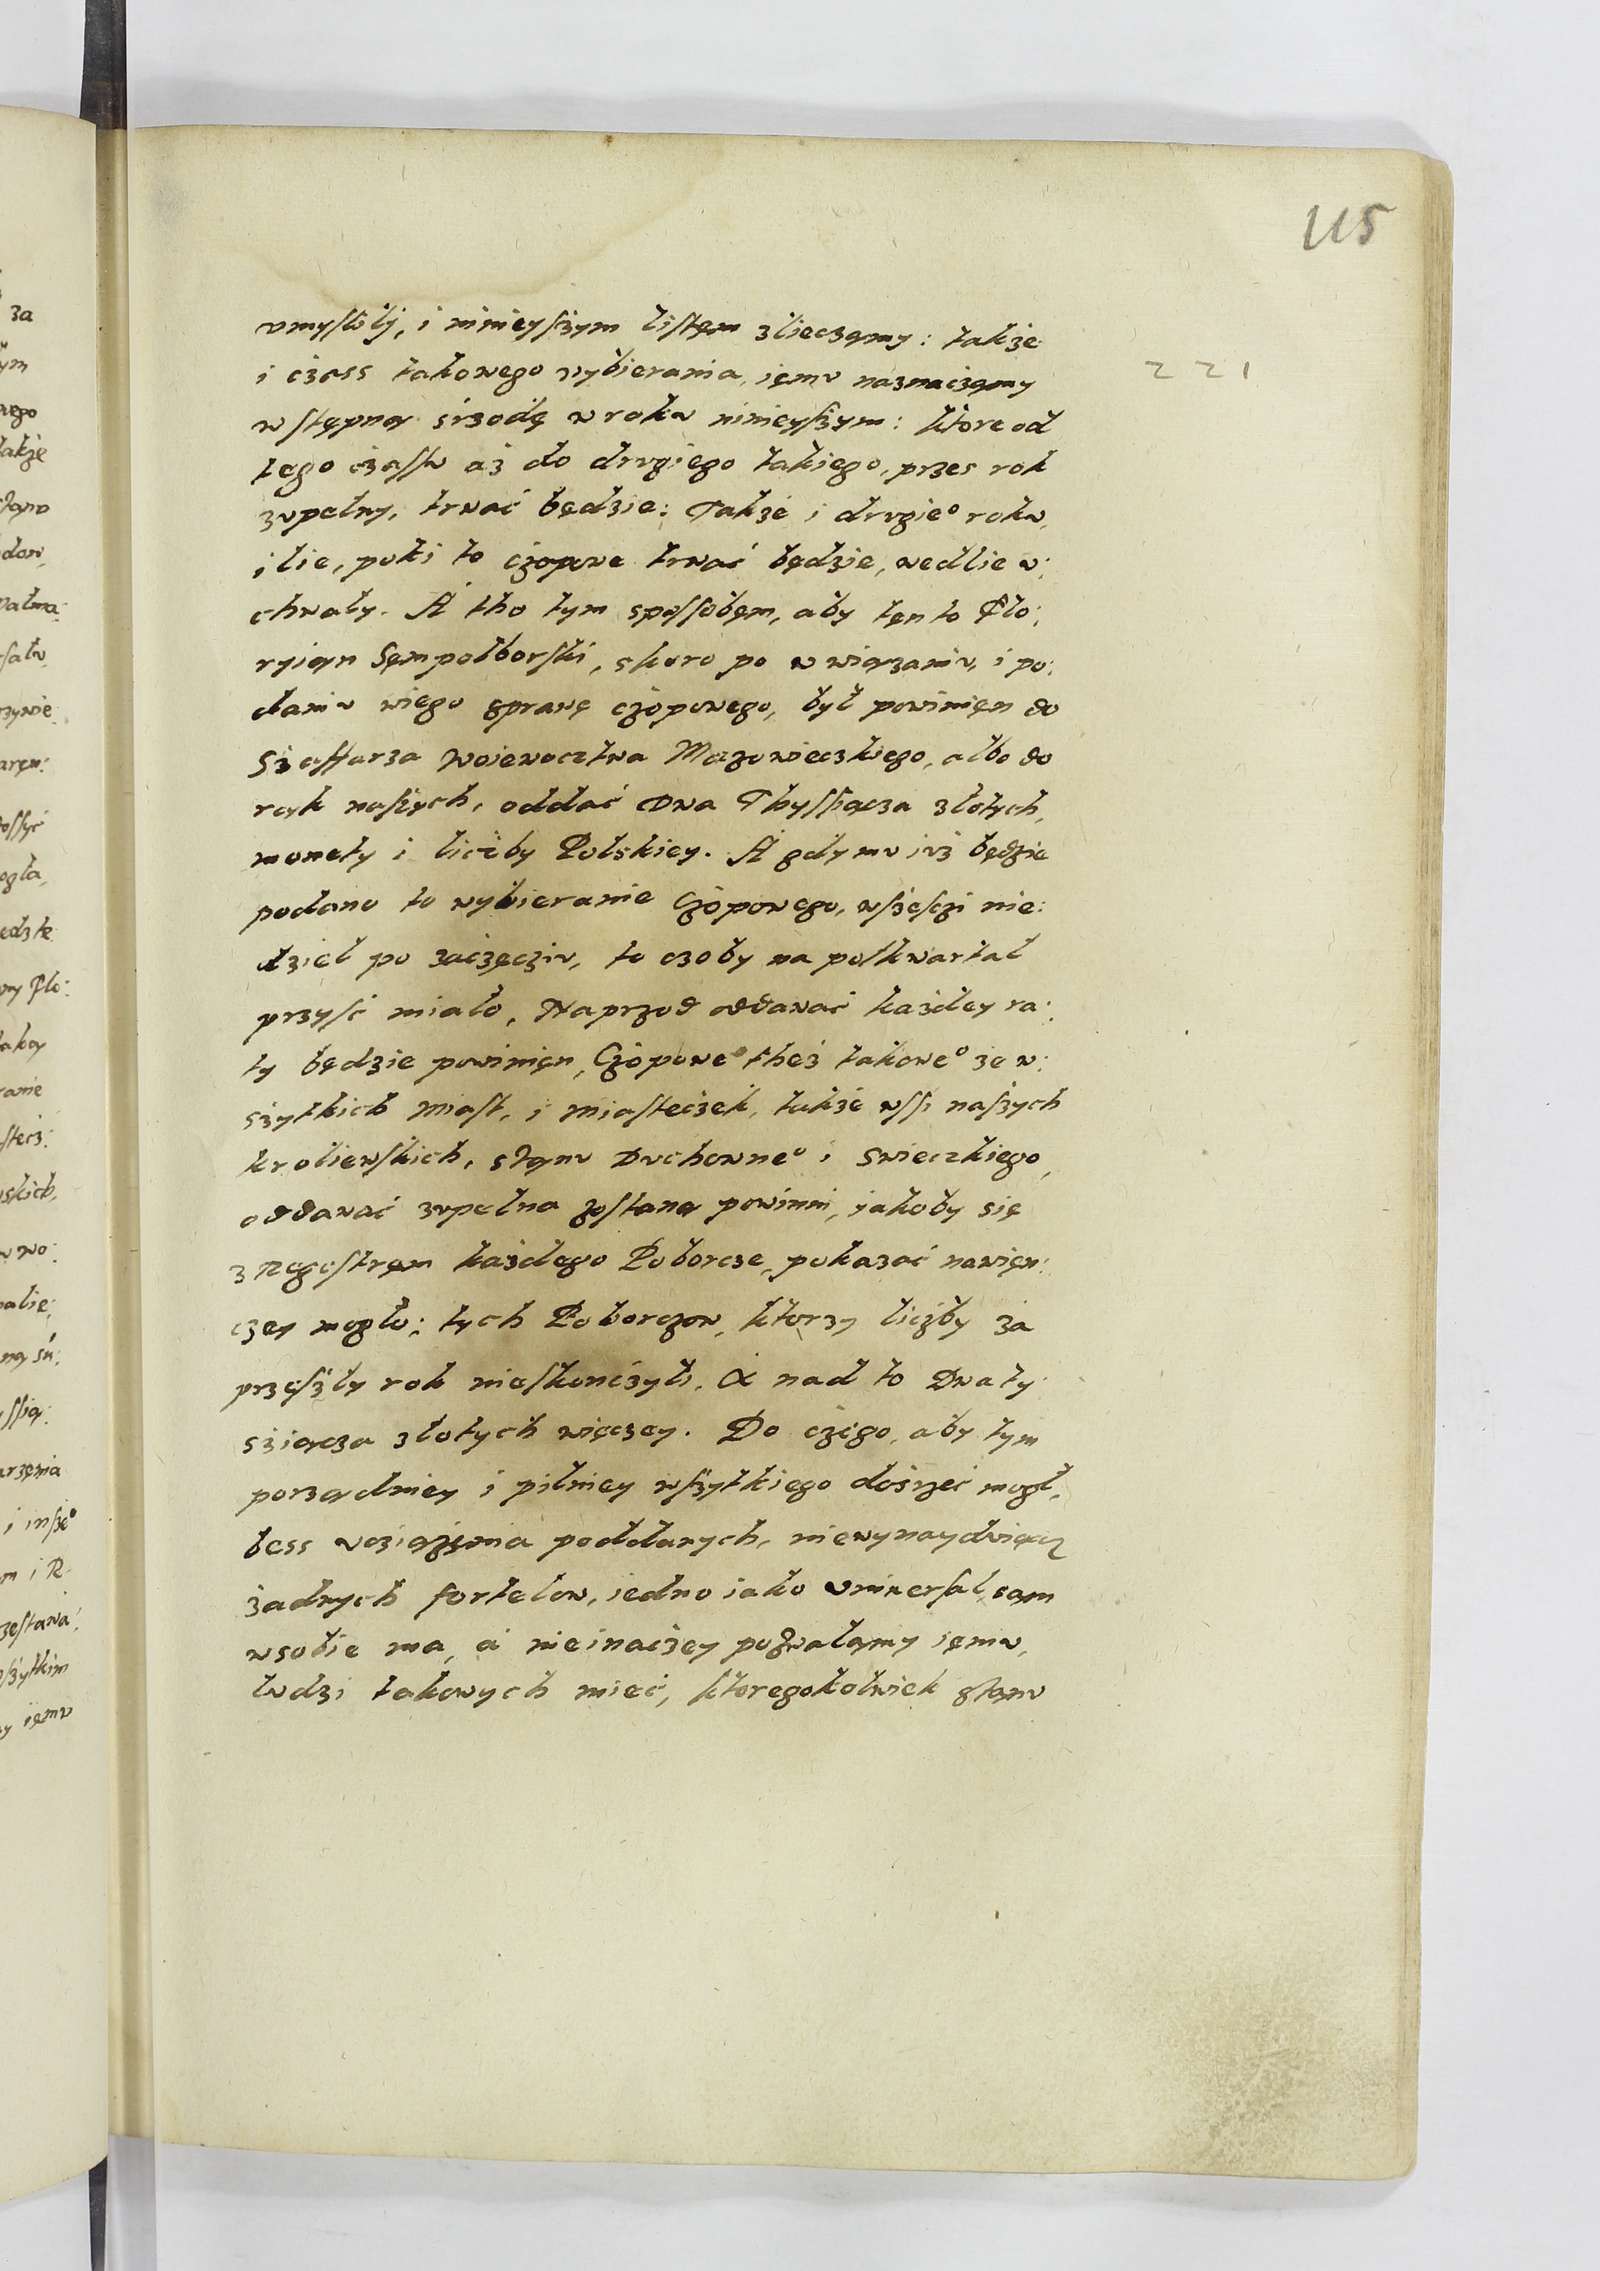 115
vmyslilj, i ninieyszym listęm zlieczamy: także
221
i czass takowego wybierania, iemv naznaczamy
wstępną srzodę w rokv ninieyszym: ktore od
tego czassu aż do drvgiego takiego, przes rok
zvpełny, trwać będzie: Także i drvgie° rokv,
i lie, poki to czopowe trwać będzie, wedlie v:
chwały. A tho tym spossobęm, aby tęn to Flo:
ryian Sęmpolborski, skoro po w wiązaniv, i po:
daniv wiego sprawę czopowego, był powinięn do
Szaffarza Woiewocztwa Mazowieczkiego, albo do
rąk naszych, oddać Dwa Thyssiącza złotych,
monety i liczby Polskiey. A gdy mv ivż będzie
podano to wybieranie Czopowego, wszesczi nie:
dziel po zaczęcziv, to czoby na poltkwartał
przysć miało, Naprzod oddawać każdey ra:
ty będzie powinięn, Czopowe° theż takowe° ze w:
szytkich miast, i miasteczek, także wssi naszych
kroliewskich, stanv Dvchowne° i swieczkiego,
oddawać zvpełna zostaną powinni, jakoby się
z Regestręm każdego Poborcze, pokazać nawięn:
czey mogło: tych Poborczow, ktorzy liczby za
przeszły rok nieskonczyli. A nad to Dwa ty
sziącza złotych więczey. Do czego, aby tym
porządniey i pilniey wszytkiego doźrzeć mogł,
bess vcziążęnia poddanych, niewynaydvięcz
żadnych fortelow, iedno iako vniwersał, sam
wsobie ma, a nieinaczey pozwalamy iemv,
lvdzi takowych mieć, ktoregokolwiek stanv